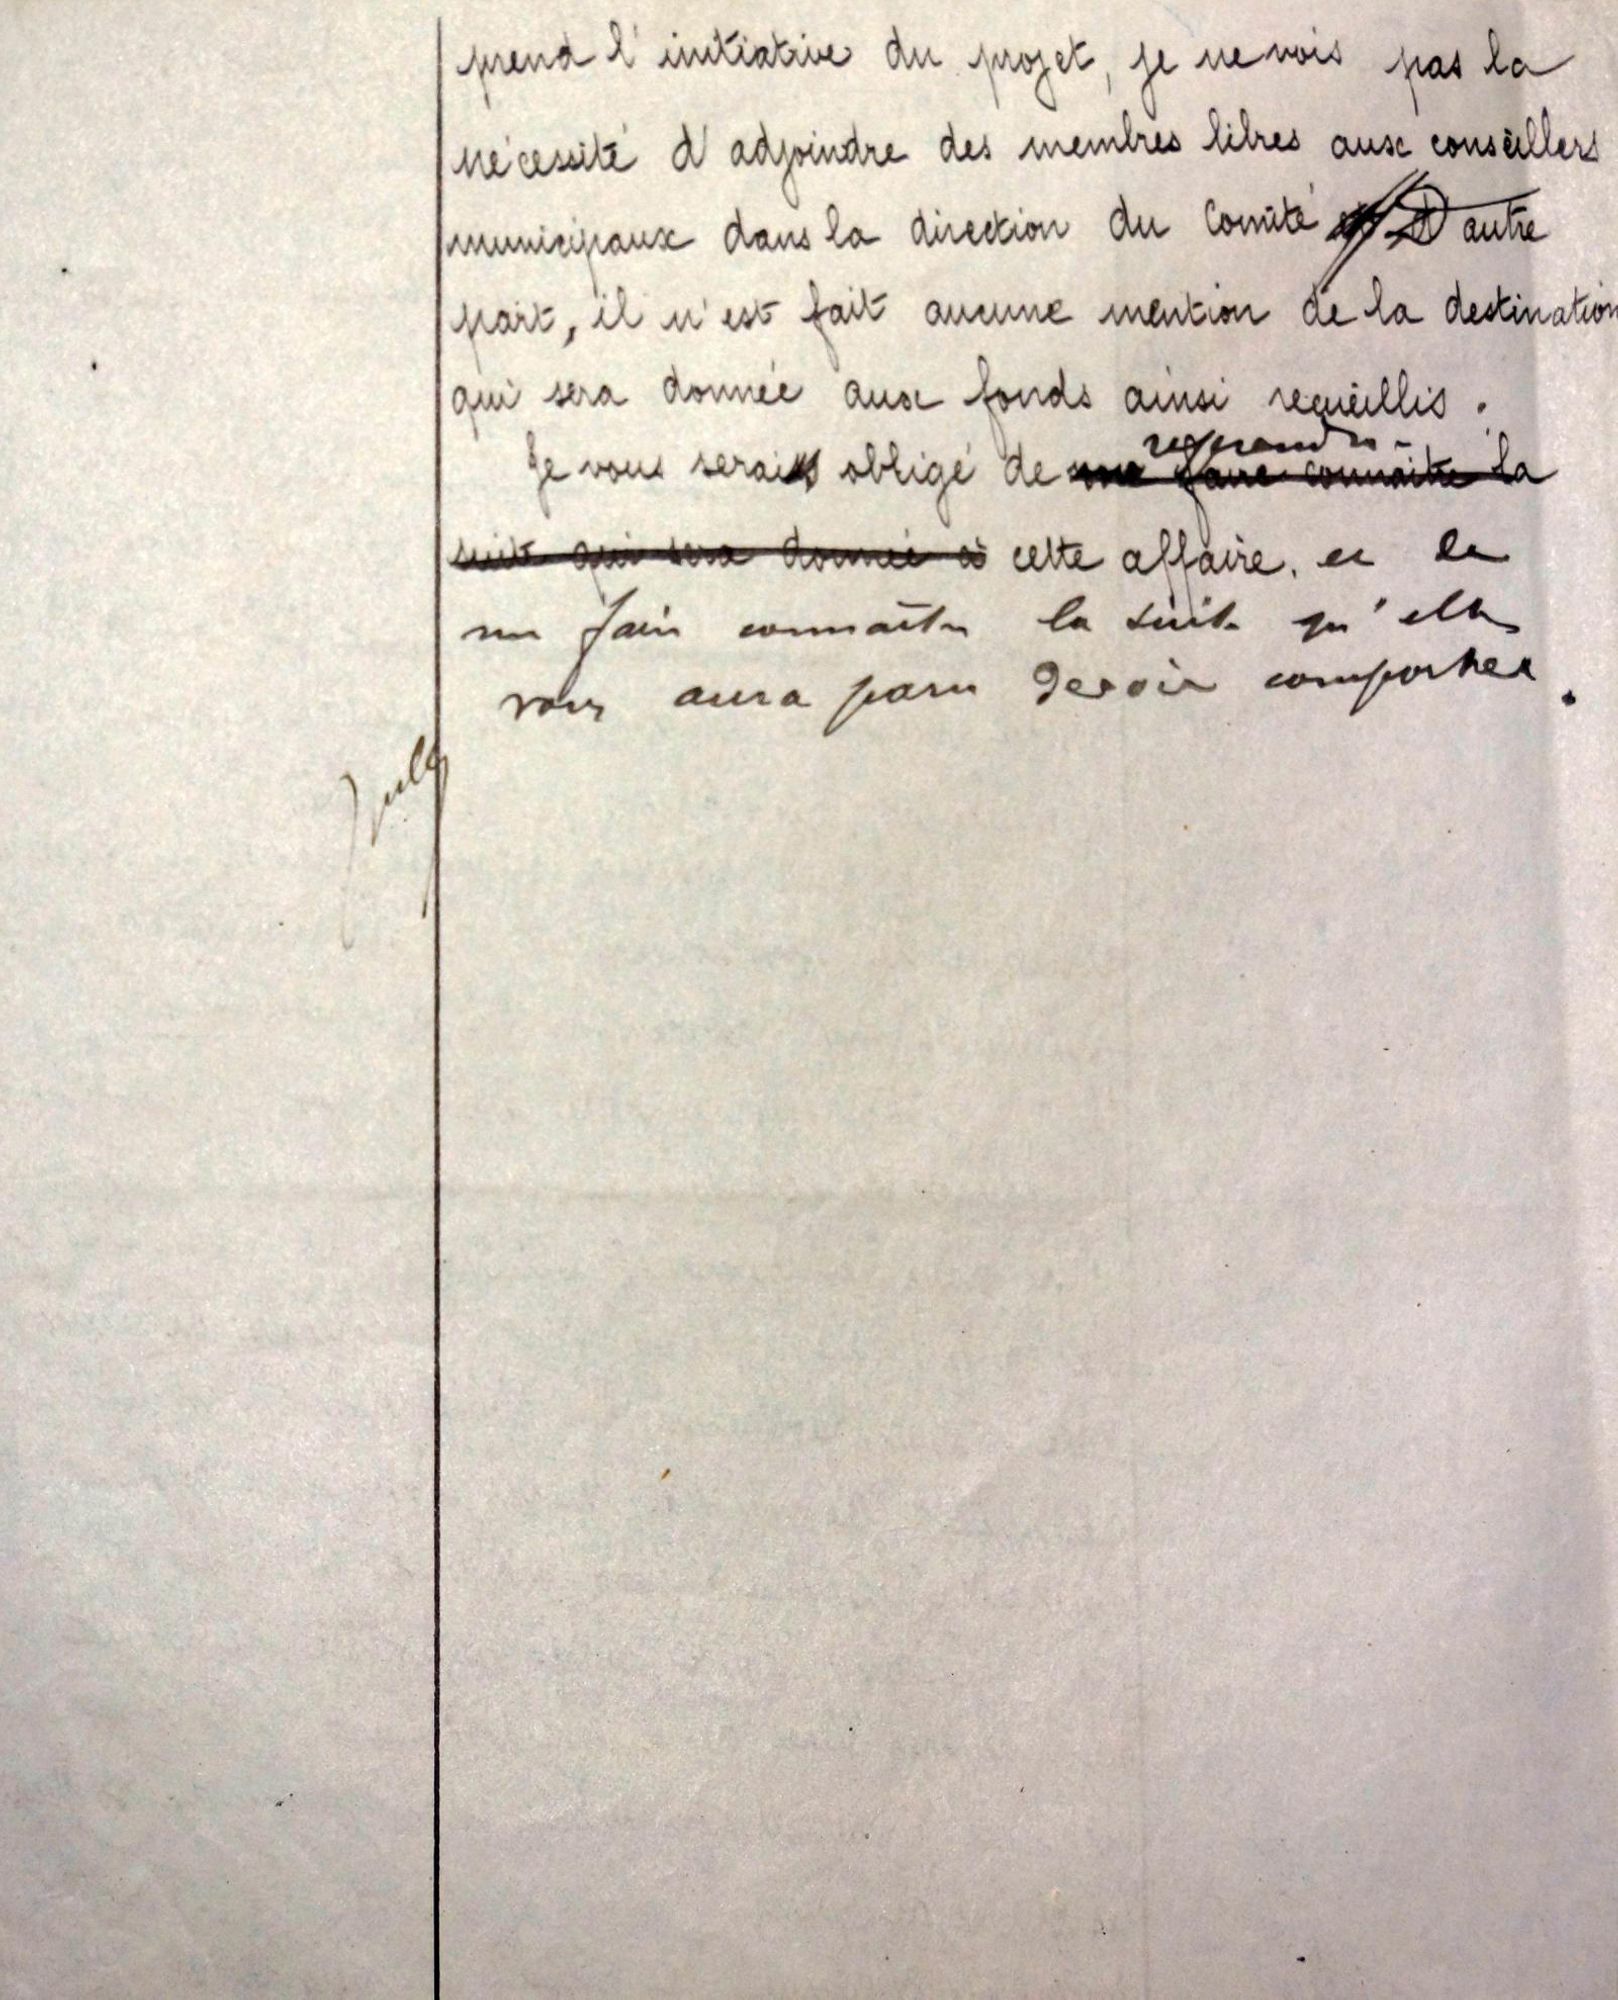 prend l'initiative du projet, je ne vois pas la
nécessité d'adjoindre des membres libres aux conseillers
municipaux dans la direction du Comité D'autre
part, il n'est fait aucune mention de la destination
qui sera donnée aux fonds ainsi recueillis.
reprendre
Je vous serais obligé de me faire connaître la
suite qui sera donnée à cette affaire, et de
me faire connaître la suite qu'elle
vous aura paru devoir comporter.